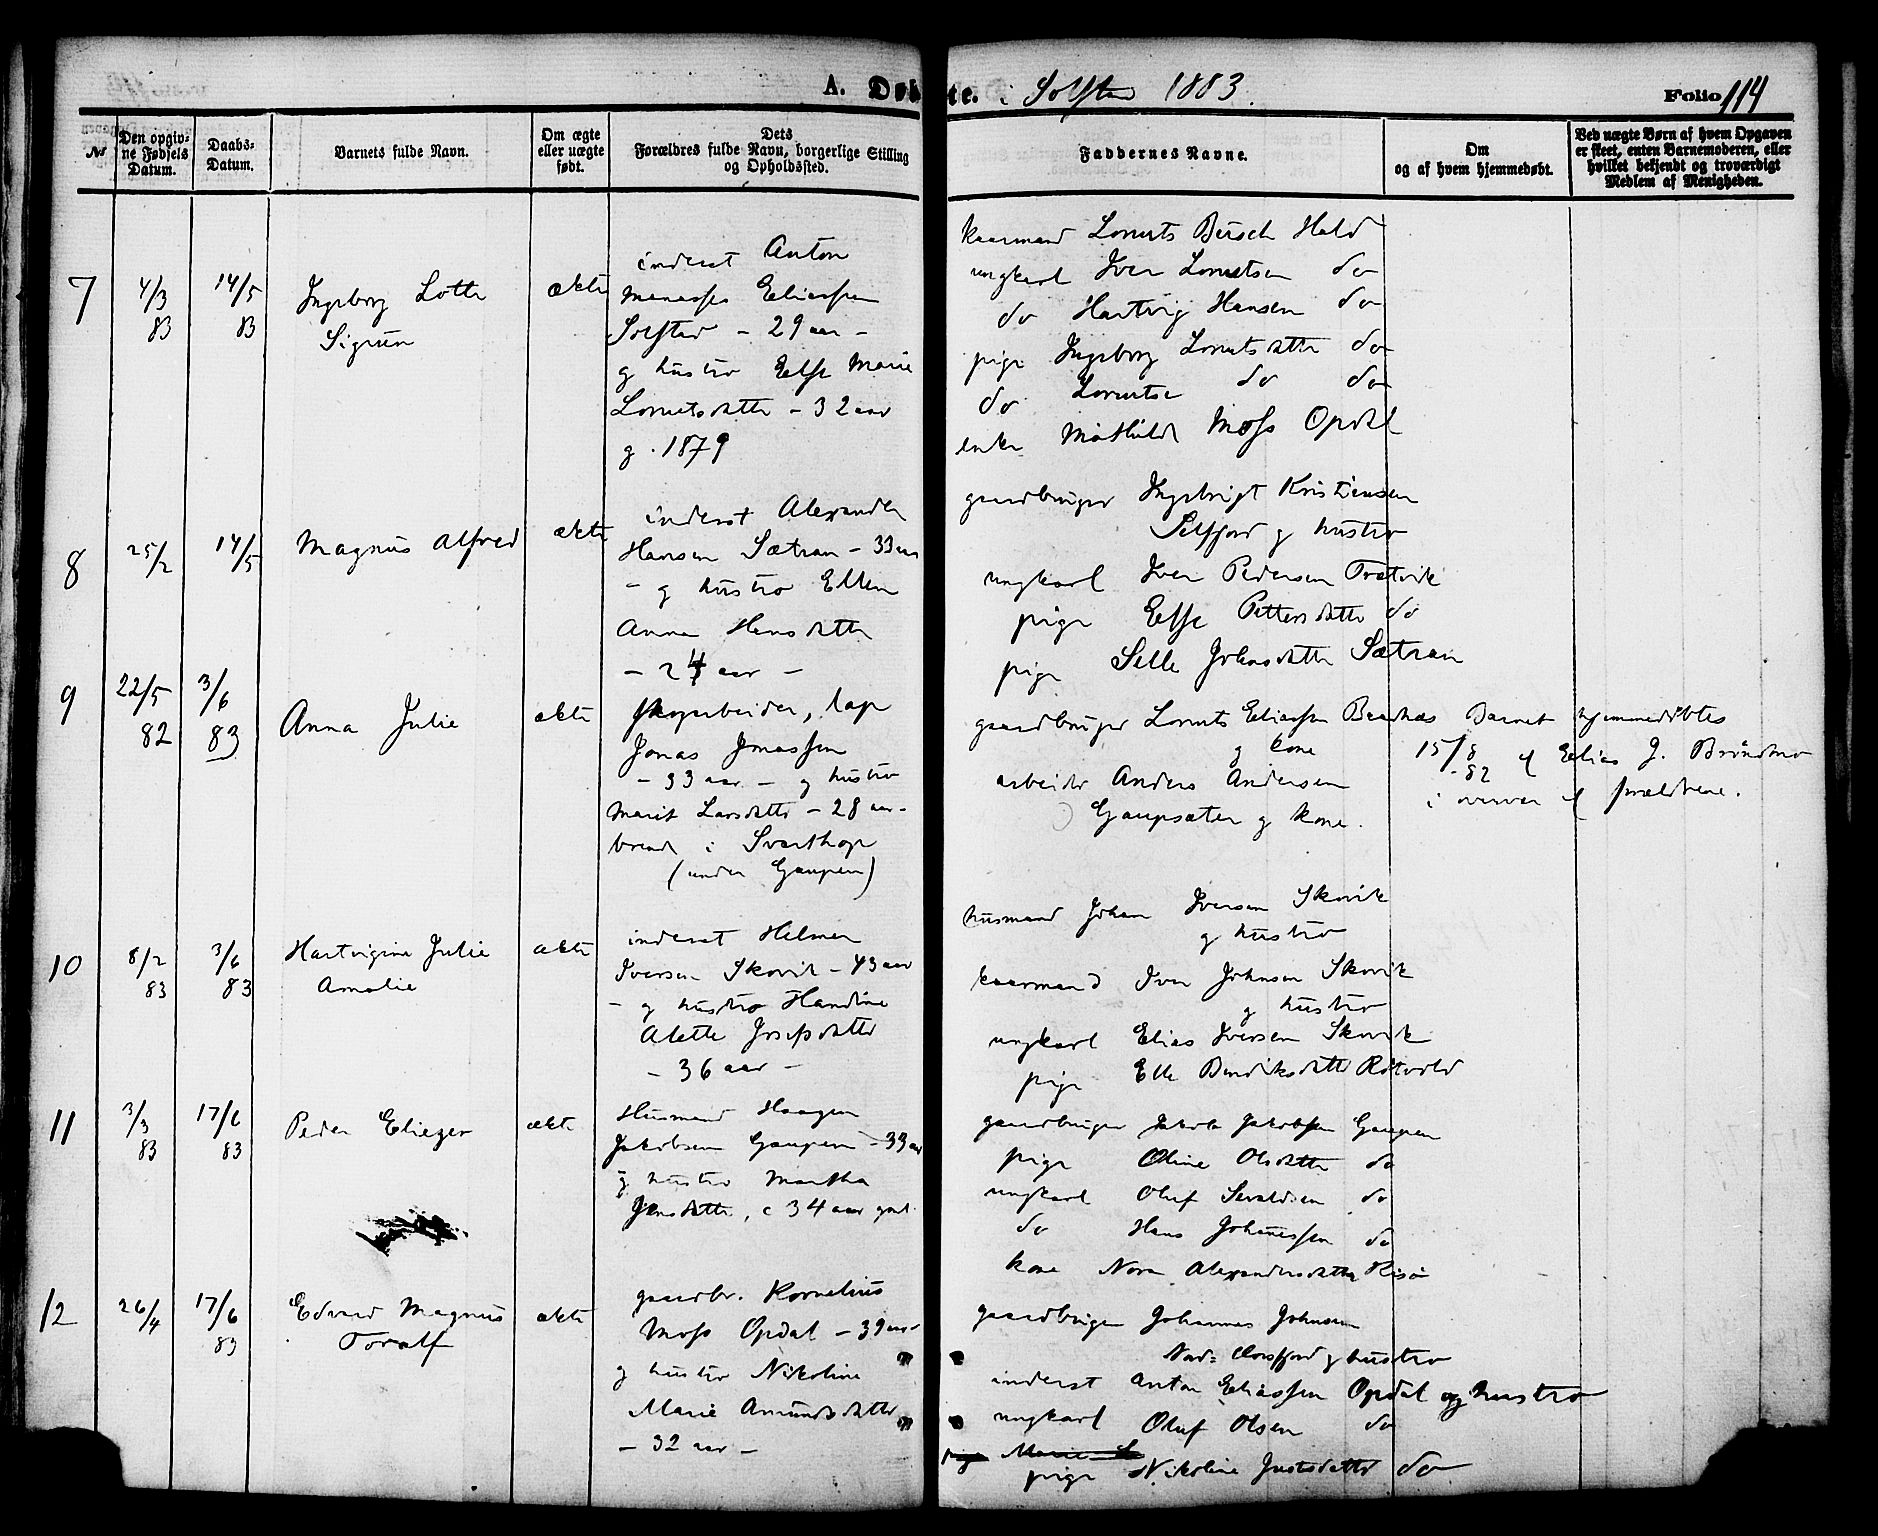 A. Døbte. i Solstad 1883.
Folio 114
№
Den opgivne Fødsels Datum.
Daabs-Datum.
Barnets fulde Navn.
Om ægte eller uægte født.
Dets Forældres fulde Navn, borgerlige Stilling og Opholdssted.
Faddernes Navne.
Om og af hvem hjemmedøbt.
Ved uægte Børn af hvem Opgaven er skeet, enten Barnemoderen, eller hvilket bekjendt og troværdigt Medlem af Menigheden.
7
4/3 83
14/5 83
Ingeborg Lotte
Sigrun
ækte
inderst Anton
Menasse Eliassen
Solstad - 29 aar -
g hustro Else Marie
Lorntsdatter - 32 aar
g. 1879
kaarmand Lornts Busch Hald
ungkarl Iver Lorntsen do
do Hartvig Hansen do
pige Ingeborg Lorntsdatter do
do Lorntse do do
enke Mathilde Moss Opdal
8
25/2
14/5
Magnus Alfred
ækte
inderst Alexander
Hansen Sætran - 33 aar
- g hustro Ellen
Anna Hansdatter
- 24 aar -
gaardbruger Ingebrigt Kristiansen
Selfjord g hustro
ungkarl Iver Pedersen Trætvik
pige Else Pettersdatter do
pige Selle Johnsdatter Sætran
9
22/5 82
3/6 83
Anna Julie
ækte
skogarbeider, lap
Jonas Jonassen
- 33 aar - g hustro
Marit Larsdatter - 28 aar -
i Svarthop
(under Gaupen)
gaardbruger Lornts Eliassen
g kone
arbeider Anders Andersen
Gaupsæter g kone.
Barnet hjemmedøbtes
15/8 - 82 af Elias J. Brøndmo
i nærvær af forældrene.
10
8/2 83
3/6 83
Hartvigine Julie
Amalie
ækte
inderst Helmer
Iversen Skovik - 43 aar
- g hustro Handine
Alette Josefsdatter
- 36 aar -
husmand Johan Iversen Skovik
g hustro
kaarmand Iver Johnsen Skovik
g hustro
ungkarl Elias Iversen Skovik
pige Elle Bendiksdatter Røtvold
11
3/3 83
17/6 83
Peder Eliezer
ækte
Husmand Haagen
Jakobsen Gaupen - 33 aar
g hustro Martha
Jensdatter, c 34 aar gml.
gaardbruger Jakob Jakobsen Gaupen
pige Oline Olsdatter do
ungkarl Oluf Sivaldsen do
do Hans Johannessen do
kone Nora Alexandersdatter Risø
12
26/4
17/6 83
Edvard Magnus
Toralf
ækte
gaardbr. Kornelius
Moss Opdal - 39 aar -
g hustro Nikoline
Marie Amundsdatter
- 32 aar -
gaardbruger Johannes Johnsen
Nord= g hustro
inderst Anton Eliassen Opdal og hustro
ungkarl Oluf Olsen do
pige Marie
pige Nikoline Justsdatter do